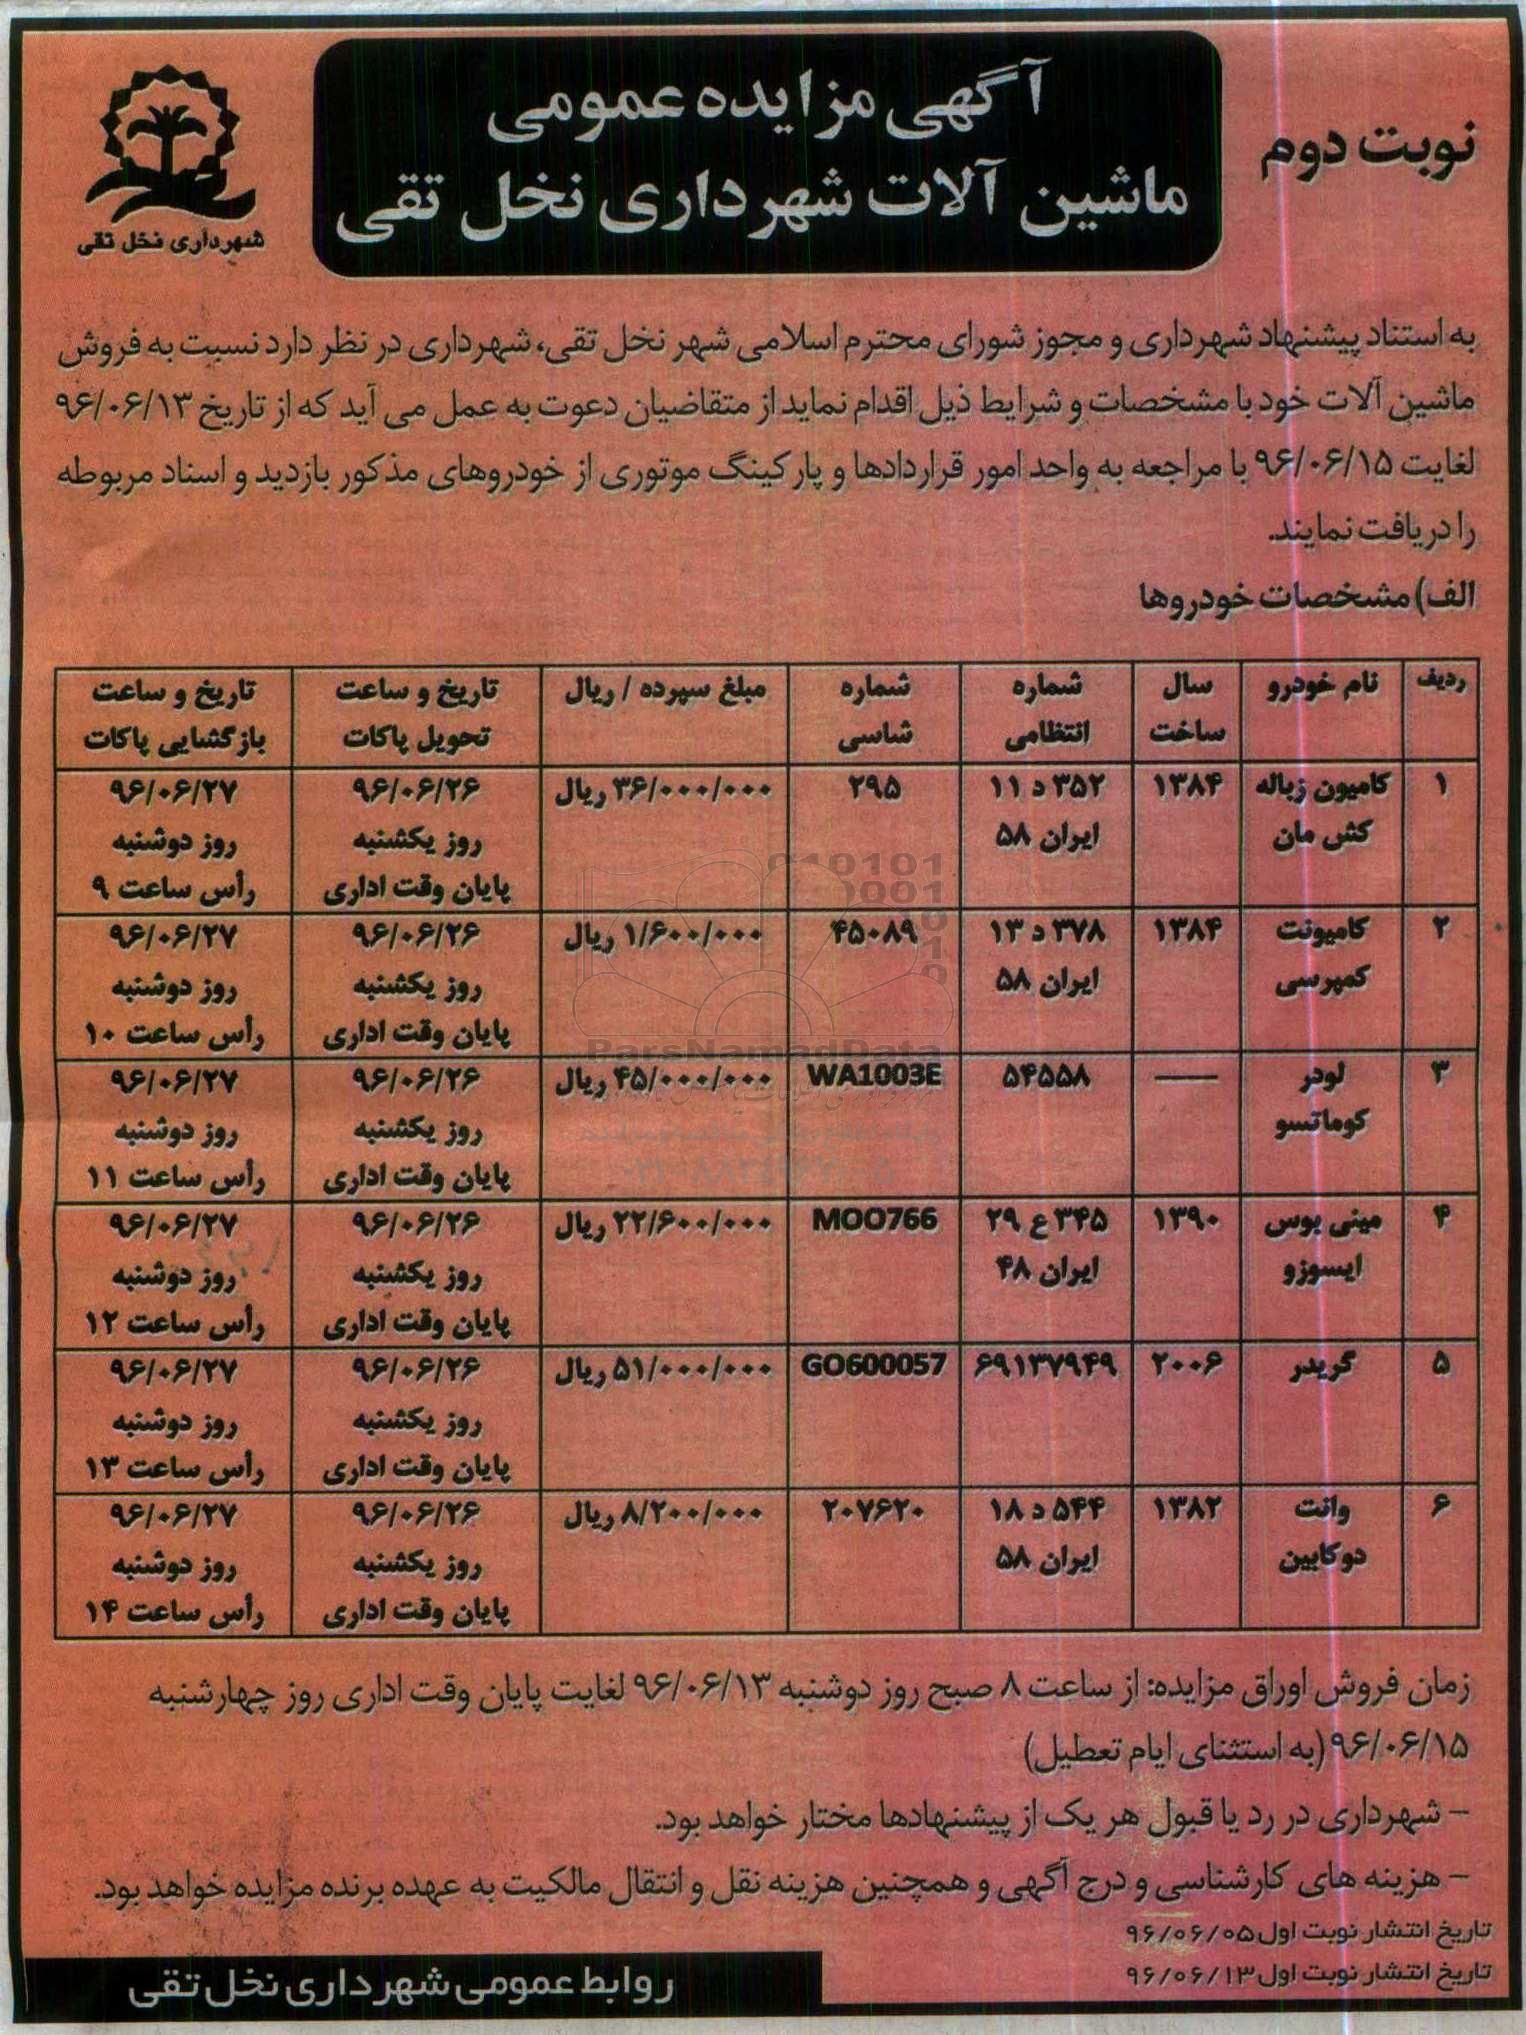 نوبت دوم
آگهی مزایده عمومی
ماشین آلات شهرداری نخل تقی
شهرداری نخل تقی
به استناد پیشنهاد شهرداری و مجوز شورای محترم اسلامی شهر نخل تقی، شهرداری در نظر دارد نسبت به فروش
ماشین آلات خود با مشخصات و شرایط ذیل اقدام نماید از متقاضیان دعوت به عمل می آید که از تاریخ ۹۶/۰۶/۱۳
لغایت ۹۶/۰۶/۱۵ با مراجعه به واحد امور قراردادها و پارکینگ موتوری از خودروهای مذکور بازدید و اسناد مربوطه
را دریافت نمایند.
الف) مشخصات خودروها
ردیف نام خودرو سال شماره شماره مبلغ سپرده / ریال تاریخ و ساعت تاریخ و ساعت
ساخت انتظامی شاسی تحویل پاکات بازگشایی پاکات
۱ کامیون زباله ۱۳۸۴ ۳۵۲ د ۱۱ ۲۹۵ ۳۶/۰۰۰/۰۰۰ ریال ۹۶/۰۶/۲۶ ۹۶/۰۶/۲۷
کش مان ایران ۵۸ روز یکشنبه روز دوشنبه
پایان وقت اداری رأس ساعت ۹
۲ کامیونت ۱۳۸۴ ۳۷۸ د ۱۳ ۴۵۰۸۹ ۱/۶۰۰/۰۰۰ ریال ۹۶/۰۶/۲۶ ۹۶/۰۶/۲۷
کمپرسی ایران ۵۸ روز یکشنبه روز دوشنبه
پایان وقت اداری رأس ساعت ۱۰
۳ لودر —— ۵۴۵۵۸ WA1003E ۴۵/۰۰۰/۰۰۰ ریال ۹۶/۰۶/۲۶ ۹۶/۰۶/۲۷
کوماتسو روز یکشنبه روز دوشنبه
پایان وقت اداری رأس ساعت ۱۱
۴ مینی بوس ۱۳۹۰ ۳۴۵ ع ۲۹ MOO766 ۲۲/۶۰۰/۰۰۰ ریال ۹۶/۰۶/۲۶ ۹۶/۰۶/۲۷
ایسوزو ایران ۴۸ روز یکشنبه روز دوشنبه
پایان وقت اداری رأس ساعت ۱۲
۵ گریدر ۲۰۰۶ ۶۹۱۳۷۹۴۹ GO600057 ۵۱/۰۰۰/۰۰۰ ریال ۹۶/۰۶/۲۶ ۹۶/۰۶/۲۷
روز یکشنبه روز دوشنبه
پایان وقت اداری رأس ساعت ۱۳
۶ وانت ۱۳۸۲ ۵۴۴ د ۱۸ ۲۰۷۶۲۰ ۸/۲۰۰/۰۰۰ ریال ۹۶/۰۶/۲۶ ۹۶/۰۶/۲۷
دوکابین ایران ۵۸ روز یکشنبه روز دوشنبه
پایان وقت اداری رأس ساعت ۱۴
ParsNamadData
زمان فروش اوراق مزایده: از ساعت ۸ صبح روز دوشنبه ۹۶/۰۶/۱۳ لغایت پایان وقت اداری روز چهارشنبه
۹۶/۰۶/۱۵ (به استثنای ایام تعطیل)
- شهرداری در رد یا قبول هر یک از پیشنهادها مختار خواهد بود.
- هزینه های کارشناسی و درج آگهی و همچنین هزینه نقل و انتقال مالکیت به عهده برنده مزایده خواهد بود.
تاریخ انتشار نوبت اول ۹۶/۰۶/۰۵
تاریخ انتشار نوبت اول ۹۶/۰۶/۱۳
روابط عمومی شهرداری نخل تقی